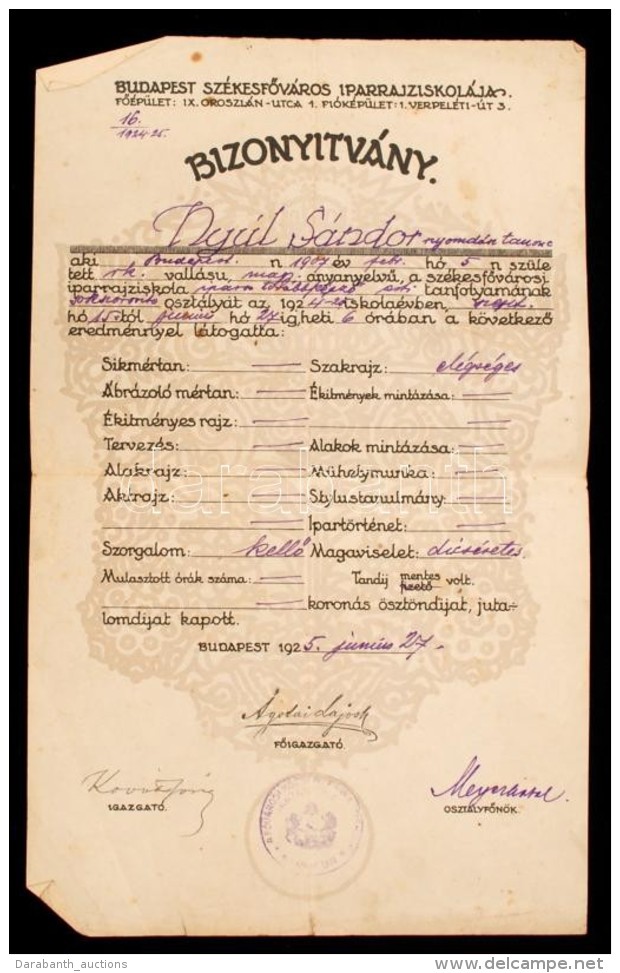 BUDAPEST SZÉKESFŐVÁROS IPARRAJZISKOLÁJA.
FŐÉPÜLET: IX. OROSZLÁN-UTCA 1. FIÓKÉPÜLET: I. VERPELÉTI-ÚT 3.
16.
1924-25.
BIZONYITVÁNY.
Nyúl Sándor nyomdász tanonc
aki Budapest n 1907 év febr. hó 5 n szüle
tett rk. vallásu, mag. anyanyelvű, a székesfővárosi
iparrajziskola tanfolyamának
osztályát az, 1924-25 iskolaévben, szept.
hó 15 től junius hó 27 ig, heti 6 órában a következő
eredménnyel látogatta:
Sikmértan: Szakrajz: elégséges
Ábrázoló mértan: Ékitmények mintázása:
Ékitményes rajz:
Tervezés: Alakok mintázása:
Alakrajz: Műhelymunka:
Aktrajz: Stylustanulmány:
Ipartörténet:
Szorgalom: kellő Magaviselet: dicséretes.
Mulasztott órák száma: Tandij mentes fizető volt.
koronás ösztöndijat, juta-
lomdijat kapott.
BUDAPEST 1925. junius 27.
darabanth
Ágotai Lajos
FŐIGAZGATÓ.
IGAZGATÓ.
OSZTÁLYFŐNÖK.
Darabanth_auctions
delcampe.net